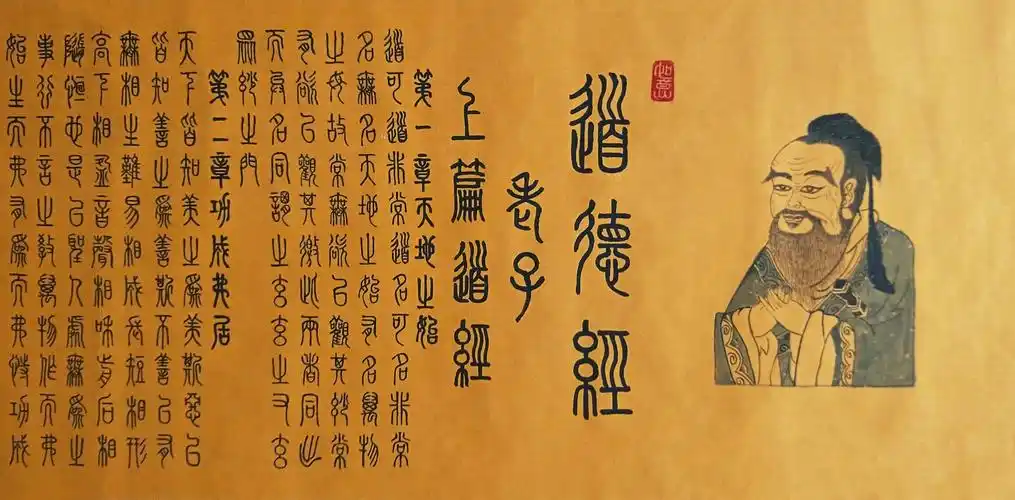 如意
道德經
老子
上篇道經
第一章天地之始
道可道非常道名可名非常
名無名天地之始有名萬物
之母故常無欲以觀其妙常
有欲以觀其徼此兩者同出
而異名同謂之玄玄之又玄
眾妙之門
第二章功成弗居
天下皆知美之為美斯惡已
皆知善之為善斯不善已有
無相生難易相成長短相形
高下相盈音聲相和前后相
隨恒也是以聖人處無為之
事行不言之教萬物作而弗
始生而弗有為而弗恃功成